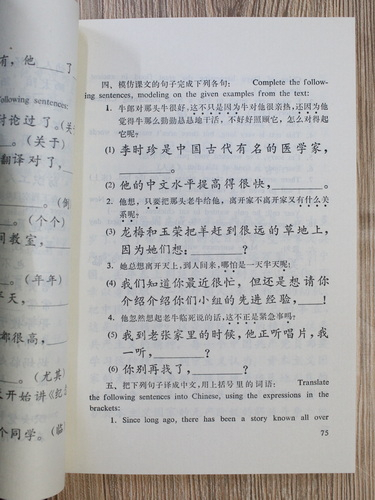 有，他____了
following sentences:
讨论过了。(关于
(关于)
翻译对了，
(个个)
同教室，
(年年)
天，
都很高，
(尤其)
开始讲《把
个同学。(临
四、模仿课文的句子完成下列各句： Complete the follow-
ing sentences, modeling on the given examples from the text:
1. 牛郎对那头牛很好，这不只是因为牛对他很亲热，还因为他
觉得牛那么勤勤恳恳地干活，不好好照顾它，怎么对得起
它呢？
(1) 李时珍是中国古代有名的医学家，
________。
(2) 他的中文水平提高得很快，________。
2. 他想，只要把那头老牛给他，离开家不离开家又有什么关
系呢？
(3) 龙梅和玉荣把羊赶到很远的草地上，
因为她们想：________？
3. 她总想离开天上，到人间来，哪怕是一天半天呢；
(4) 我们知道你最近很忙，但还是想请你
介绍介绍你们小组的先进经验，____！
4. 他忽然想起老牛临死说的话，这不正是紧急事吗？
(5) 我到老张家里的时候，他正听唱片，我
一听，________？
(6) 你别再找了，________？
五、把下列句子译成中文，用上括号里的词语： Translate
the following sentences into Chinese, using the expressions in the
brackets:
1. Since long ago, there has been a story known all over
75